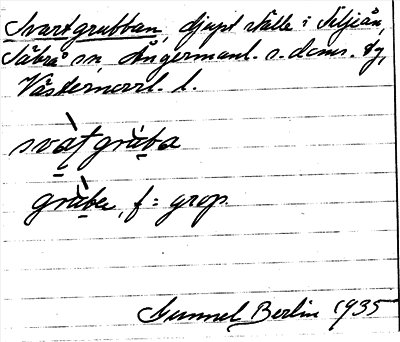 Svartgrubban, djupt ställe i Siljeån,
Säbrå sn, Ångermanl. s. doms. tg,
Västernorrl. l.
svàtgrùba
grùba, f = grop.
Gunnel Berlin 1935